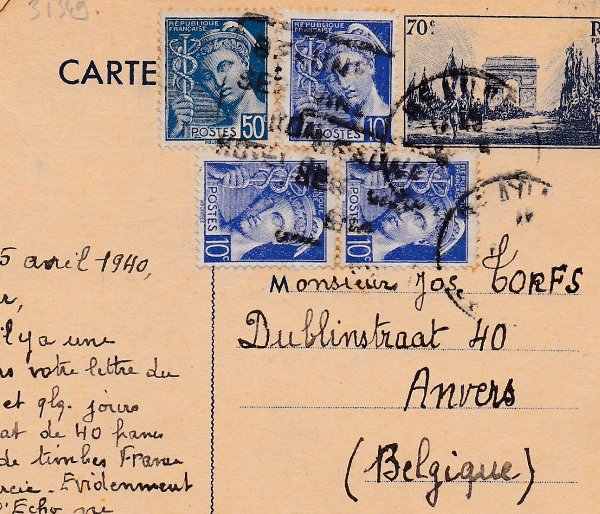 31349
CARTE
RÉPUBLIQUE FRANÇAISE
POSTES 50c
RÉPUBLIQUE FRANÇAISE
POSTES 10c
POSTES 10c
POSTES 10c
70c
R
5 avril 1940,
il y a une
votre lettre du
et qlq. jours
de 40 francs
de timbes France
Evidenment
l'Echo ne
Monsieur Jos TORFS
Dublinstraat 40
Anvers
(Belgique)